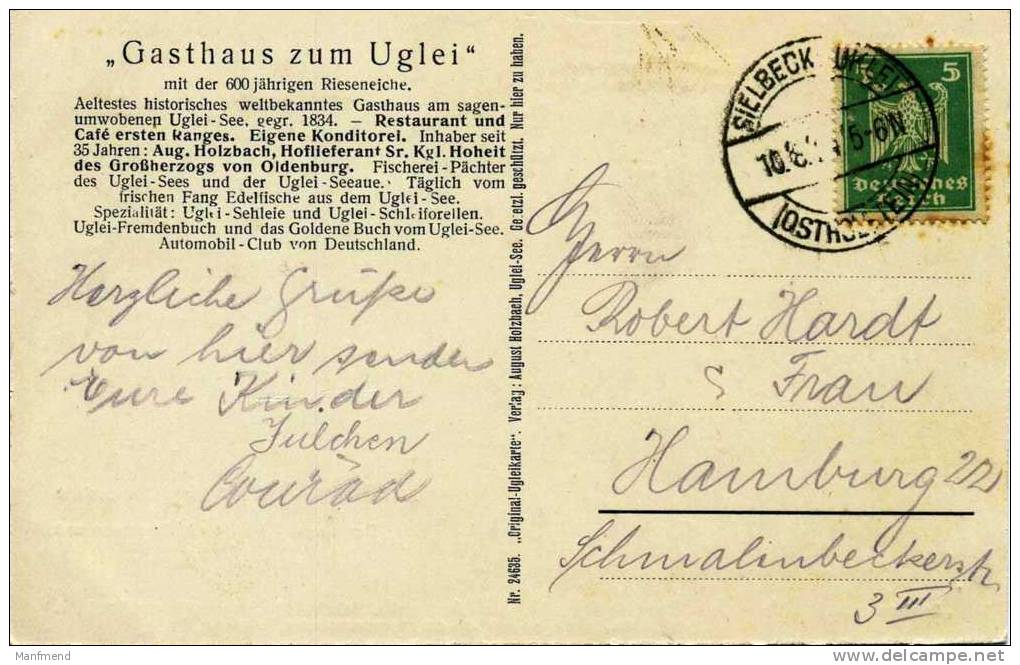 „Gasthaus zum Uglei“
mit der 600 jährigen Rieseneiche.
Aeltestes historisches weltbekanntes Gasthaus am sagen-
umwobenen Uglei-See, gegr. 1834. — Restaurant und
Café ersten Ranges. Eigene Konditorei. Inhaber seit
35 Jahren: Aug. Holzbach, Hoflieferant Sr. Kgl. Hoheit
des Großherzogs von Oldenburg. Fischerei-Pächter
des Uglei-Sees und der Uglei-Seeaue. Täglich vom
frischen Fang Edelfische aus dem Uglei-See.
Spezialität: Uglei-Sehleie und Uglei-Schleiforellen.
Uglei-Fremdenbuch und das Goldene Buch vom Uglei-See.
Automobil-Club von Deutschland.
Herzliche Grüße
von hier senden
Eure Kinder
Julchen
Conrad
Nr. 24635. „Original-Ugleikarte“. Verlag: August Holzbach, Uglei-See. Gesetzl. geschützt. Nur hier zu haben.
SIELBECK
10.8. 5-6N
(OSTHOLSTEIN)
5
Deutsches
Reich
Herrn
Robert Hardt
& Frau
Hamburg 22
Schmalinbeckerstr
3 III
Manfmend